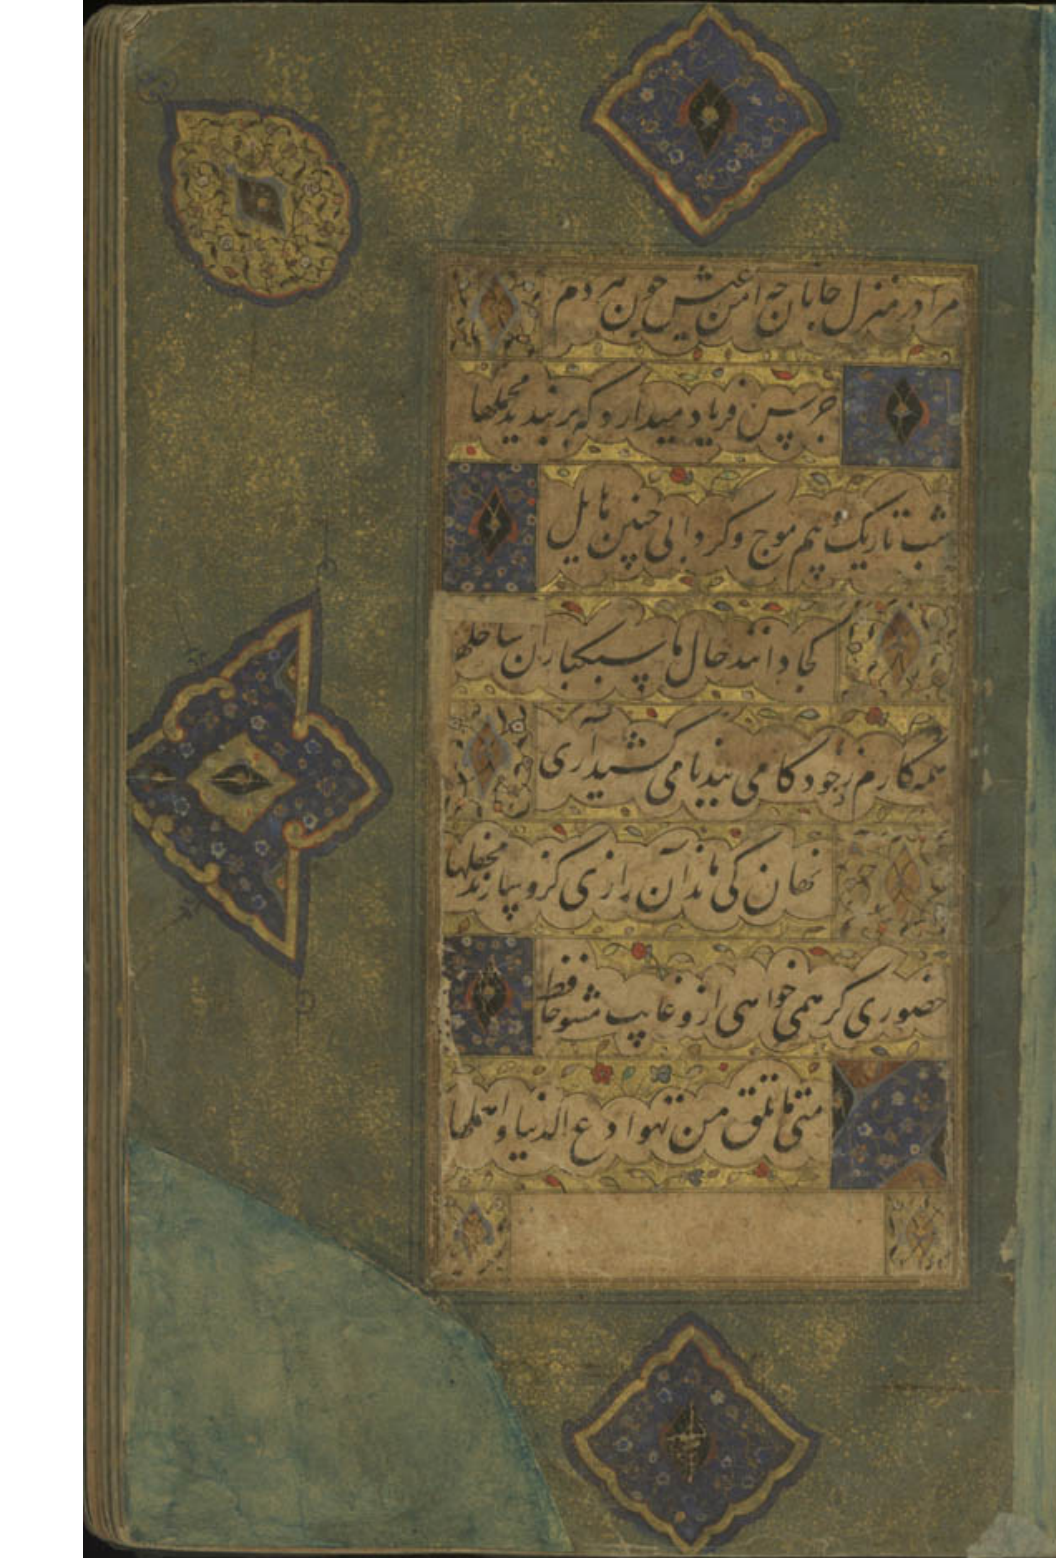 مرا در منزل جانان چه امن عیش چون هر دم
جرس فریاد میدارد که بربندید محملها
شب تاریک و بیم موج و گردابی چنین هایل
کجا دانند حال ما سبکباران ساحلها
همه کارم ز خود کامی ببدنامی کشید آری
نهان کی ماند آن رازی کزو سازند محفلها
حضوری گر همی خواهی ازو غایب مشو حافظ
متی ما تلق من تهوا دع الدنیا و اهملها